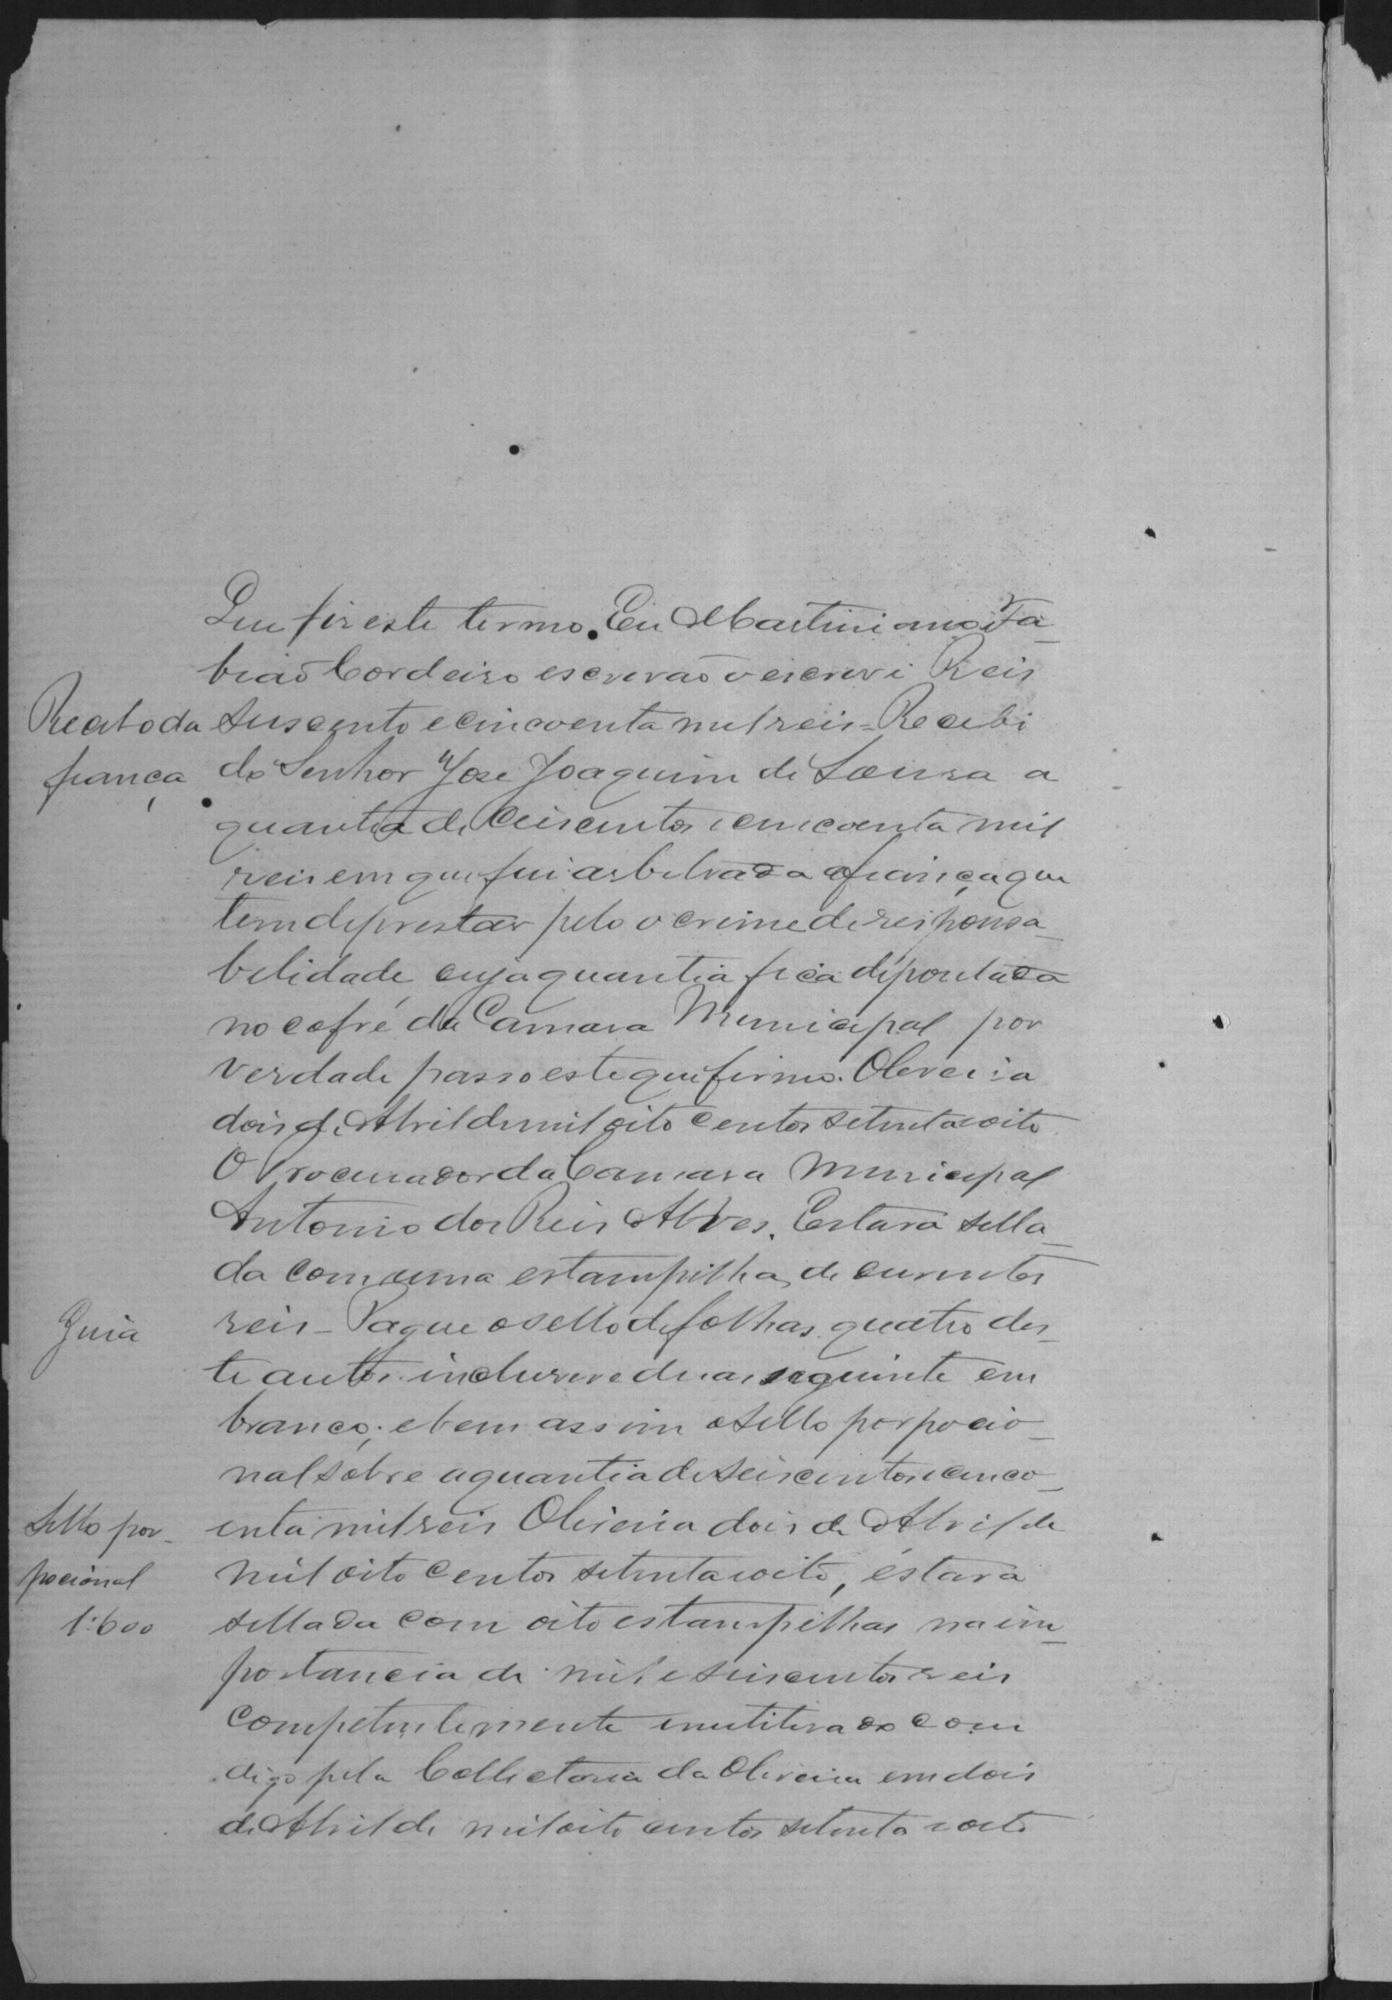 Que fiz este termo. Eu Martiniano Fa-
bião Cordeiro escrivão o escrevi Reis
Recibo da
fiança
Seiscento e cincoenta mil reis = Recebi
do Senhor José Joaquim de Sousa a
quantia de Ceiscentos e cincoenta mil
reis em que fui arbitrada a fiança que
tem de prestar pelo o crime de responsa-
belidade cuja quantia fica depositada
no cofre da Camara Municipal por
verdade passo este que firmo. Oliveira
dois de Abril de mil oito centos setenta e oito
O Procurador da Camara Municipal
Antonio dos Reis Alves. Estava sella-
da com uma estampilha de duzentos
Guia
reis - Pague o sello de folhas quatro des-
te autos incluzive duas seguinte em
branco; e bem assim o sello porpocio-
nal sobre a quantia de Seiscentos e cinco-
Sello por-
pocional
1:600
enta mil reis Oliveira dois de Abril de
mil oito centos setenta e oito, estava
sellada com oito estampilhas na im-
portancia de mil e seiscentos reis
competentemente inutilizado com
digo pela Collectoria da Oliveira em dois
de Abril de mil oito centos setenta e oito